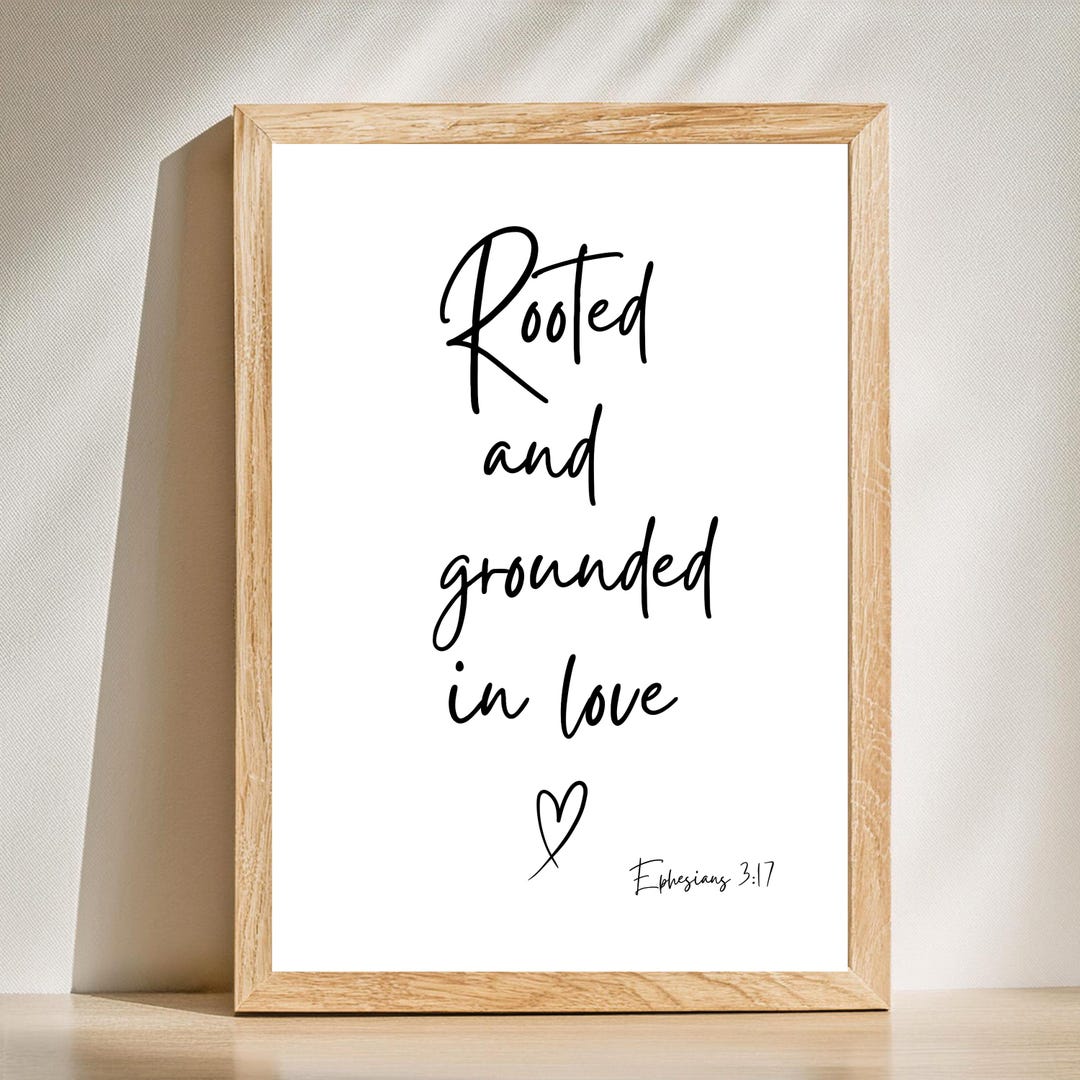 Rooted
and
grounded
in love
Ephesians 3:17